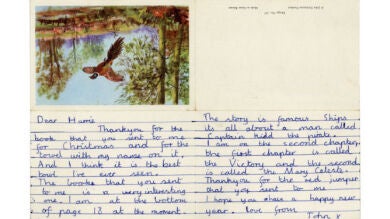 Dear Harrie
Thankyou for the
book that you sent to me
for Christmas and for the
towel with my name on it.
And I think it is the best
towl I've ever seen.
The book that you sent
to me is a very interesting
one. I am at the bottom
of page 18 at the moment.
The story is famous Ships
its all about a man called
Captain Kidd the pirate.
I am on the second chapter
the first chapter is called
the Victory and the second
is called the Mary Celeste.
Thankyou for the red jumper
that you sent to me
I hope you have a happy new
year. love from
John